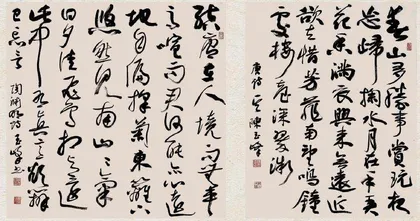 春山多勝事賞玩夜
忘歸掬水月在手弄
花香滿衣興來無遠近
欲去惜芳菲南望鳴鐘
處樓臺深翠微
唐詩 陳玉峰
結廬在人境而無車
馬喧問君何能爾心遠
地自偏採菊東籬下
悠然見南山山氣
日夕佳飛鳥相與還
此中有真意欲辯
已忘言
陶淵明詩 玉峰書